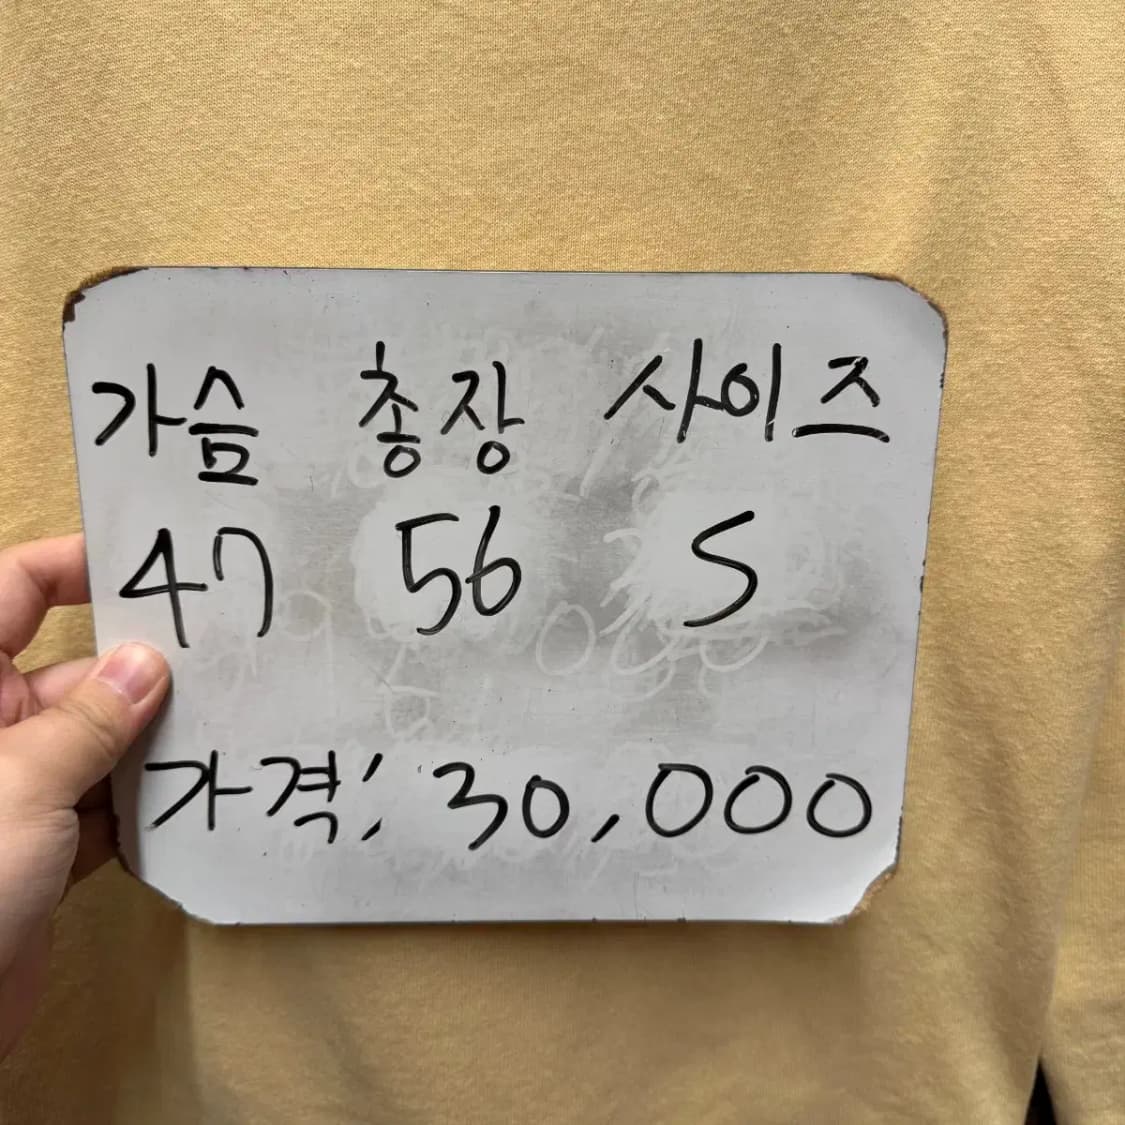 가슴 총장 사이즈
47 56 S
가격: 30,000